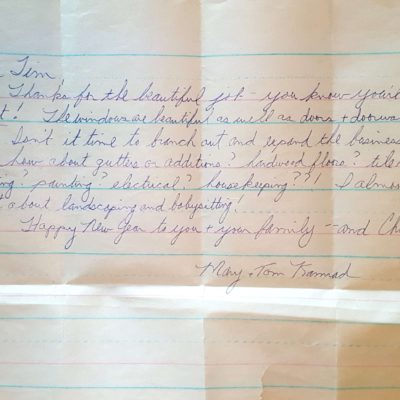 Tim
Thanks for the beautiful job - you know you're
! The windows are beautiful as well as doors + doorwa
Isn't it time to branch out and expand the business
how about gutters or additions? hardwood floors? tile
ing? painting? electrical? housekeeping??! I almos
about landscaping and babysitting!
Happy New Year to you + your family -- and Ch
Mary + Tom